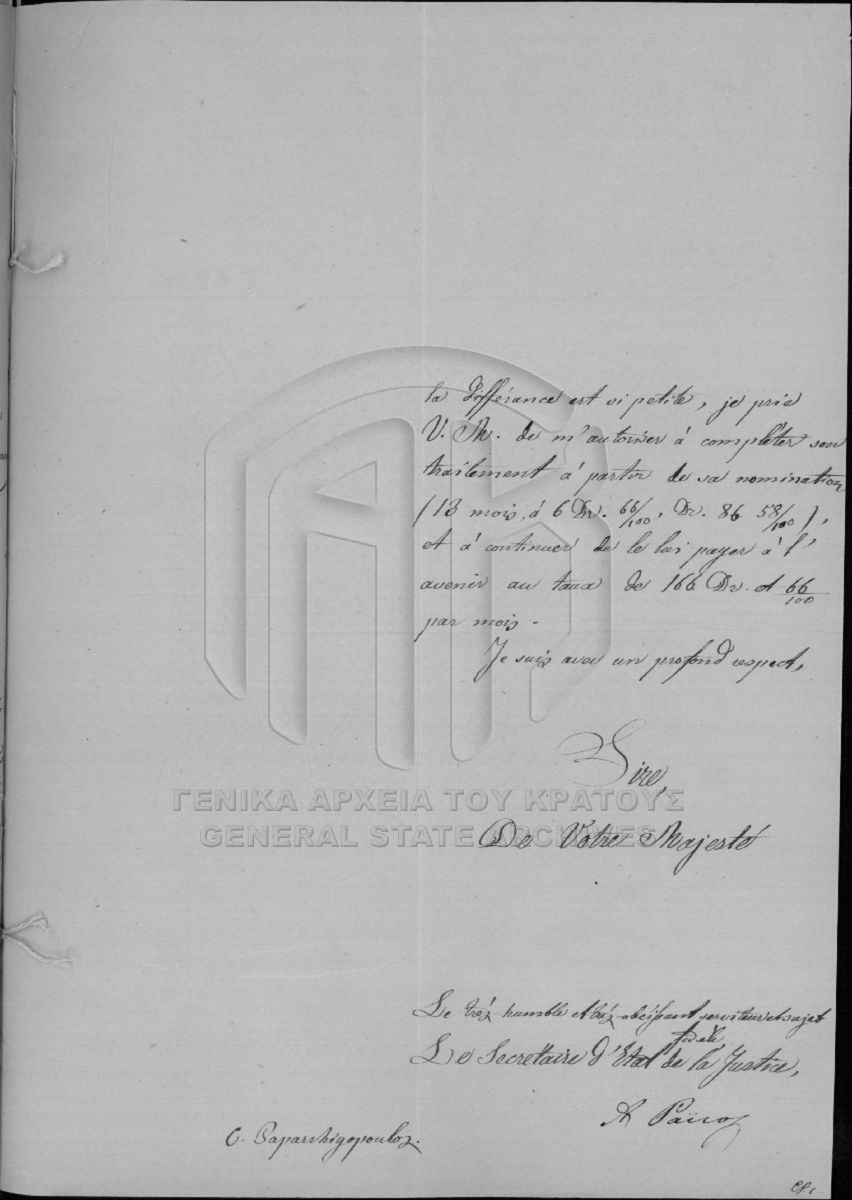 la différance est si petite, je prie
V. M. de m'autoriser à completer son
traitement à partir de sa nomination
(13 mois, à 6 Dr. 66/100, Dr. 86 58/100),
et à continuer de le lui payer à l'
avenir au taux de 166 Dr. et 66/100
par mois.
Je suis avec un profond respect,
Sire,
De Votre Majesté
ΓΕΝΙΚΑ ΑΡΧΕΙΑ ΤΟΥ ΚΡΑΤΟΥΣ
GENERAL STATE ARCHIVES
Le très humble et très obéissant serviteur et sujet
fidèle,
Le Secrétaire d'Etat de la Justice,
A Païcos
C. Paparrhigopoulos.